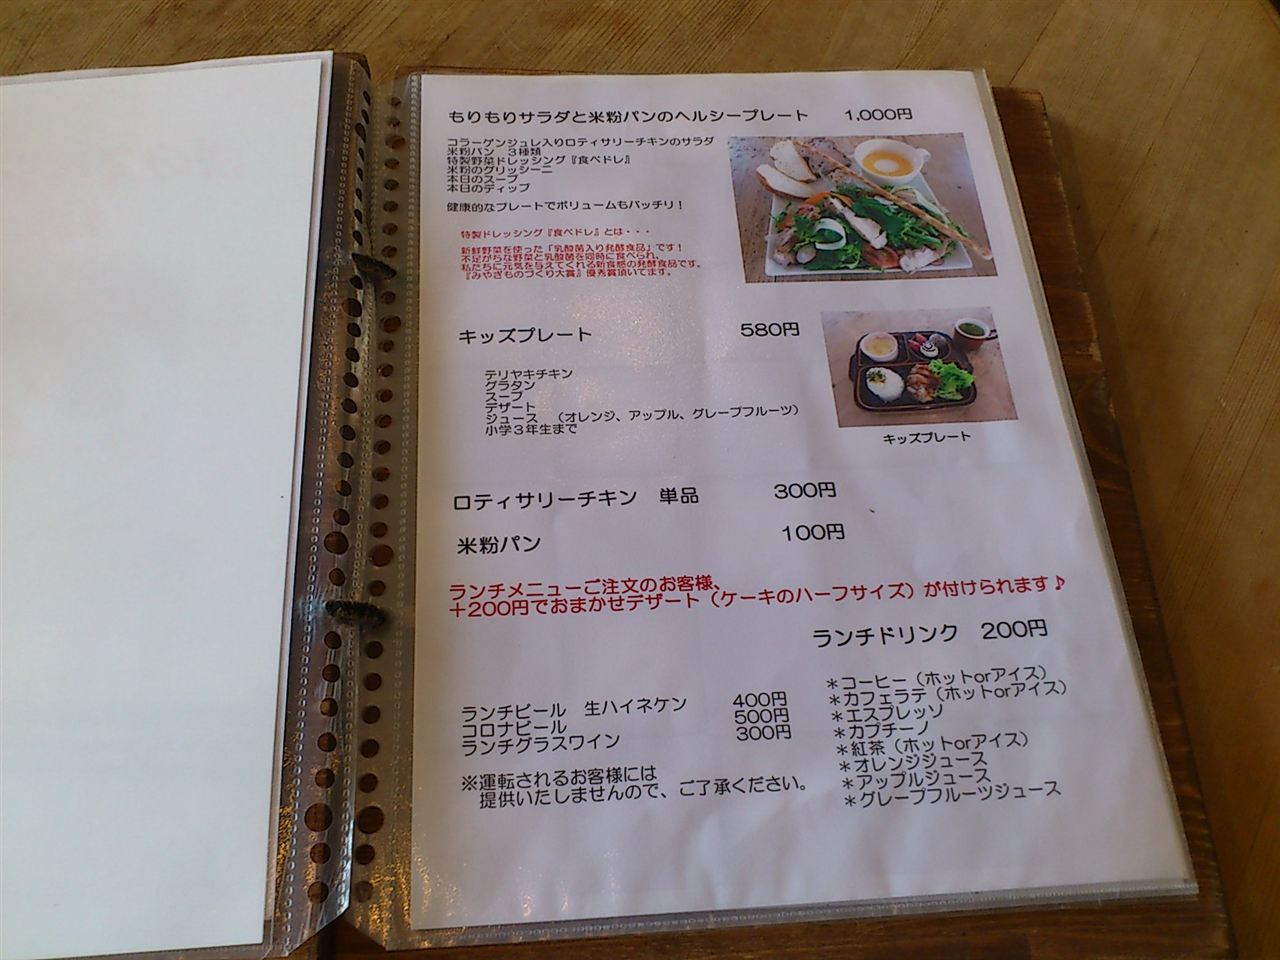 もりもりサラダと米粉パンのヘルシープレート 1,000円
コラーゲンジュレ入りロティサリーチキンのサラダ
米粉パン 3種類
特製野菜ドレッシング『食べドレ』
米粉のグリッシーニ
本日のスープ
本日のディップ
健康的なプレートでボリュームもバッチリ！
特製ドレッシング『食べドレ』とは・・・
新鮮野菜を使った「乳酸菌入り発酵食品」です！
不足がちな野菜と乳酸菌を同時に食べられ、
私たちに元気を与えてくれる新食感の発酵食品です。
『みやぎものづくり大賞』優秀賞頂いてます。
キッズプレート 580円
テリヤキチキン
グラタン
スープ
デザート
ジュース （オレンジ、アップル、グレープフルーツ）
小学３年生まで
キッズプレート
ロティサリーチキン 単品 300円
米粉パン 100円
ランチメニューご注文のお客様、
＋200円でおまかせデザート（ケーキのハーフサイズ）が付けられます♪
ランチドリンク 200円
＊コーヒー（ホットorアイス）
＊カフェラテ（ホットorアイス）
＊エスプレッソ
＊カプチーノ
＊紅茶（ホットorアイス）
＊オレンジジュース
＊アップルジュース
＊グレープフルーツジュース
ランチビール 生ハイネケン 400円
コロナビール 500円
ランチグラスワイン 300円
※運転されるお客様には
提供いたしませんので、ご了承ください。